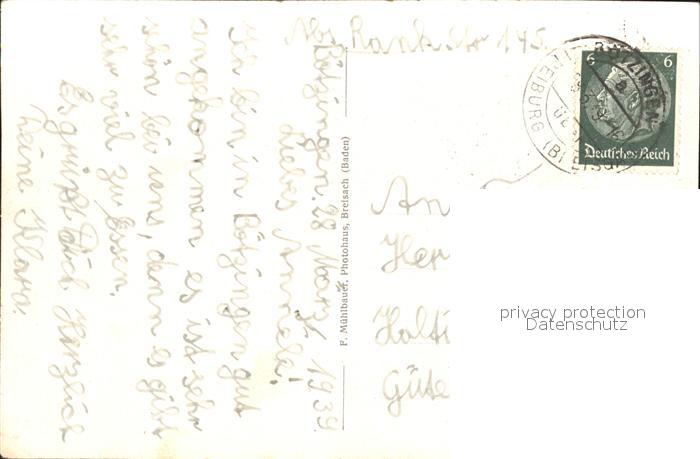 Abs. Rankstr 145.
Bötzingen. 28 März 1939
Liebes Annele!
Ich bin in Bötzingen gut
angekommen es ist sehr
schön bei iens, denn es gibt
sehr viel zu essen.
Es grüßt Dich Herzlich
Deine Klara.
F. Mühlbauer, Photohaus, Breisach (Baden)
6 6
Deutsches Reich
BÖTZINGEN
FREIBURG (B)
An
Her
Holti
Güte
privacy protection
Datenschutz